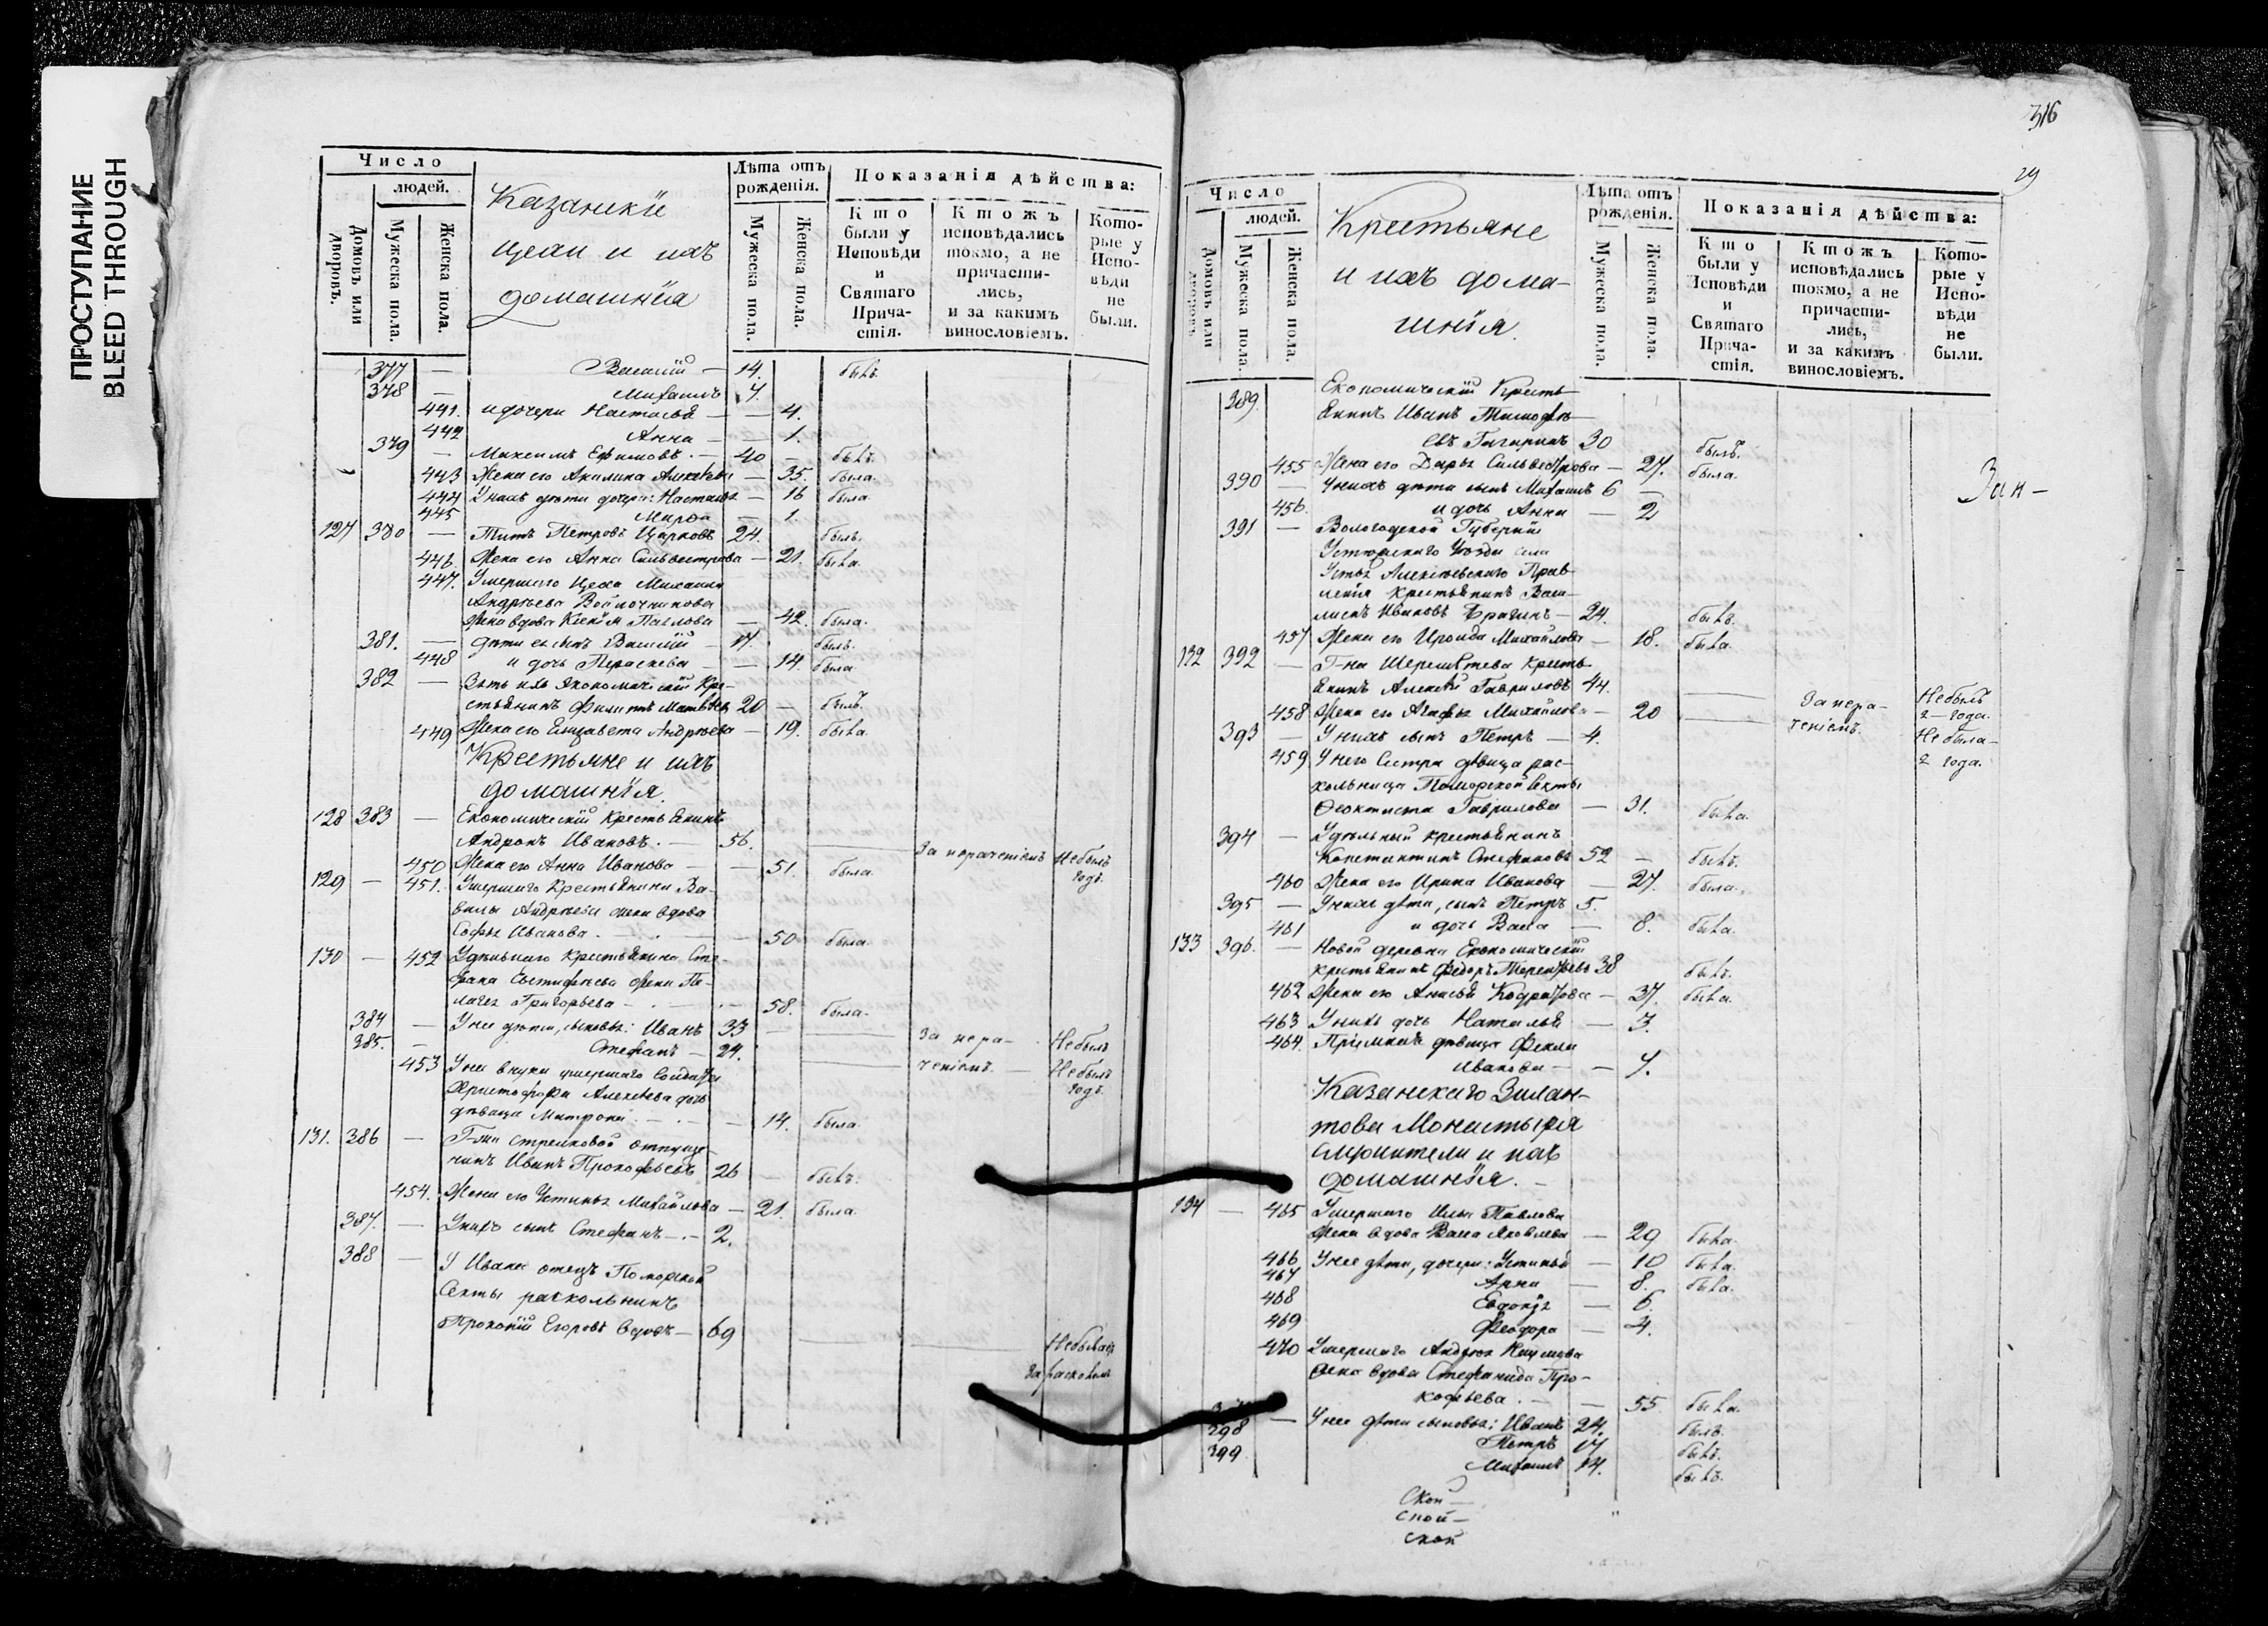 ПРОСТУПАНИЕ
BLEED THROUGH
Число
людей.
Домовъ или дворовъ.
Мужеска пола.
Женска пола.
Казанскіи
цехи и ихъ
домашнія
Лѣта отъ рожденія.
Мужеска пола.
Женска пола.
Показанія дѣйства:
Кто были у Исповѣди и Святаго Прича-стія.
Ктожъ исповѣдались токмо, а не причасти-лись, и за какимъ винословіемъ.
Кото-рые у Испо-вѣди не были.
377 — Василій — 14. былъ.
378 — Михаилъ 7.
441. и дочери Настасья — — 4.
442 Анна — — 1.
379 — Максимъ Ефимовъ. — 40 — былъ.
443 Жена его Акилина Алексѣева — 35. была.
444 У нихъ дѣти дочери: Настасья — 16 была.
445 Мавра — 1.
127 380 — Титъ Петровъ Царковъ 24. былъ.
446 Жена его Анна Сильвестрова — 21. была.
447. Умершаго Цеха Михаила
Андрѣева Войлочникова
жена вдова Ксенія Павлова — 42. была.
381. — дѣти ея сынъ Василій — 17. былъ.
448 и дочь Параскева — — 14. была.
382 — Зять ихъ Экономическій Кре-
стьянинъ Филиппъ Матвѣевъ 20 — былъ.
449 Жена его Елизавета Андрѣева — 19. была.
Крестьяне и ихъ
домашнія.
128 383 — Економическій Крестьянинъ
Андронъ Ивановъ. — 56. — За нераченіемъ Небылъ годъ.
450 Жена его Анна Иванова — — 51. была.
129 — 451. Умершаго Крестьянина Ва-
вилы Андрѣева жена вдова
Софья Иванова. — 50 была.
130 — 452 Удѣльнаго Крестьянина Сте-
фана Евстифѣева жена Пе-
лагея Григорьева — 58. была.
384 — У нее дѣти, сыновья: Иванъ 33 — За нера- Небылъ
385. — Стефанъ — 24. — ченіемъ. — Небылъ годъ.
453 У ней внука умершаго Солдата
Христофора Алексѣева дочь
дѣвица Матрона. — 14. была.
131. 386 — Г-жи Стрелковой отпуще-
нинъ Иванъ Прокофьевъ 26 — былъ.
454. Жена его Устинья Михайлова — 21. была.
387. — У нихъ сынъ Стефанъ — 2.
388 — У Ивана отецъ Поморской
Секты раскольникъ
Прокопій Егоровъ вдовъ — 69 — Небылъ за расколъ
316
29
Число
людей.
Домовъ или дворовъ.
Мужеска пола.
Женска пола.
Крестьяне
и ихъ дома-
шнія.
Лѣта отъ рожденія.
Мужеска пола.
Женска пола.
Показанія дѣйства:
Кто были у Исповѣди и Святаго Прича-стія.
Ктожъ исповѣдались токмо, а не причасти-лись, и за какимъ винословіемъ.
Кото-рые у Испо-вѣди не были.
389. Економическій Кресть-
янинъ Иванъ Тимофѣ-
евъ Гагаринъ 30 былъ.
455 Жена его Дарья Сильвестрова — 27. была.
390 — У нихъ дѣти сынъ Михаилъ 6 —
456. и дочь Анна — 2
391 — Вологодской Губерніи
Устюжскаго Уѣзда села
Устья Алексѣевскаго Прав-
ленія крестьянинъ Васи-
лискъ Ивановъ Брагинъ — 24. былъ.
457 Жена его Ираида Михайлова — 18. была.
132 392 — Г-на Шереметева кресть-
янинъ Алексѣй Гавриловъ 44. — За нера- Небылъ 2 — года.
458 Жена его Агафья Михайлова — 20 — ченіемъ. Не была — 2 года.
393 — У нихъ сынъ Петръ — 4.
459 У него Сестра дѣвица рас-
кольница Поморской Секты
Феоктиста Гаврилова — 31. была.
394 — Удѣльный крестьянинъ
Константинъ Стефановъ 52 — былъ.
460 Жена его Ирина Иванова — 27. была.
395 — У нихъ дѣти, сынъ Петръ 5.
461 и дочь Васса — 8. была.
133 396. — Новой деревни Економическій
крестьянинъ Федоръ Терентьевъ 38 былъ.
462 Жена его Анисья Кодратова — 37. была.
463 У нихъ дочь Наталья — 3.
464. Пріемышъ дѣвица Фекла
Иванова — — 7.
Казанскаго Зилан-
това Монастыря
служители и ихъ
домашнія. —
134 — 465 Умершаго Ильи Павлова
жена вдова Васса Яковлева — 29 была.
466 У нее дѣти, дочери: Устинья — 10 была.
467 Анна — 8. была.
468 Евдокія — 6.
469 Феодора — 4.
470 Умершаго Андрея
жена вдова Стефанида Про-
кофьева. — — 55 была.
— У нее дѣти сыновья: Иванъ 24. былъ.
398 Петръ 17 былъ.
399 Михаилъ 14. былъ.
Ской —
ской —
ской